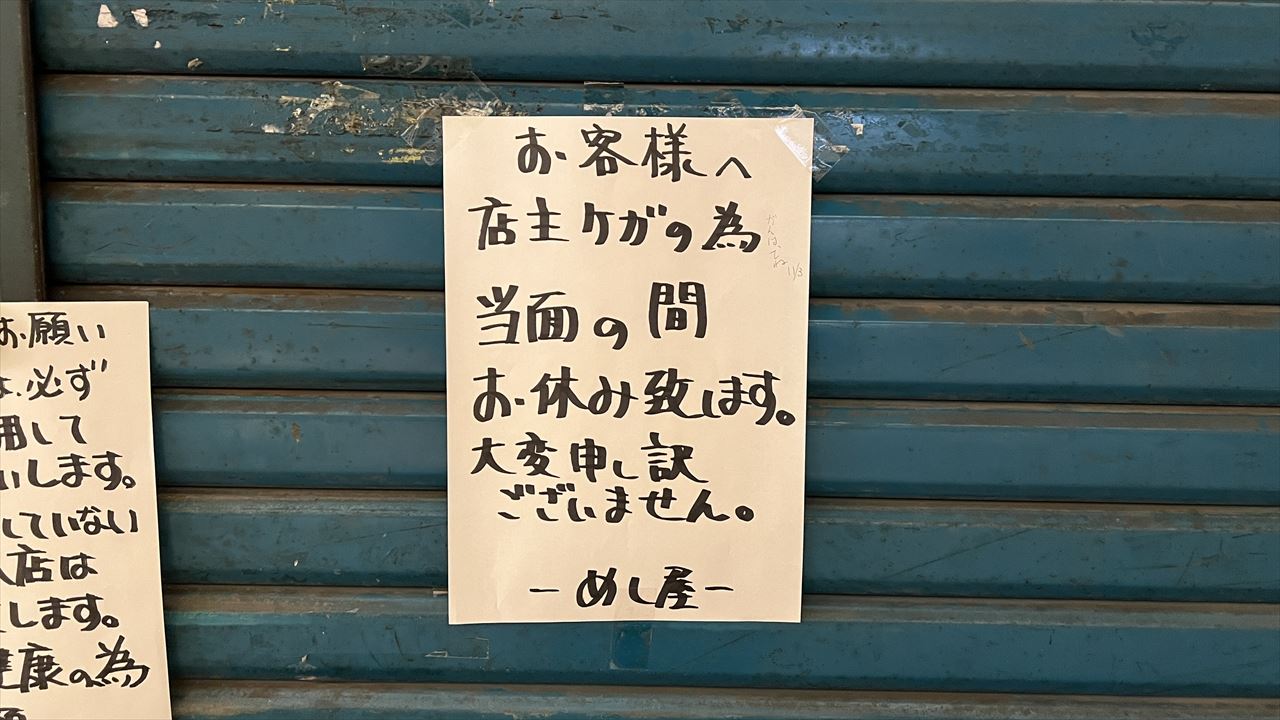 お客様へ
店主ケガの為
当面の間
お休み致します。
大変申し訳
ございません。
−めし屋−
11/3
お願い
必ず
用して
いします。
していない
店は
します。
健康の為